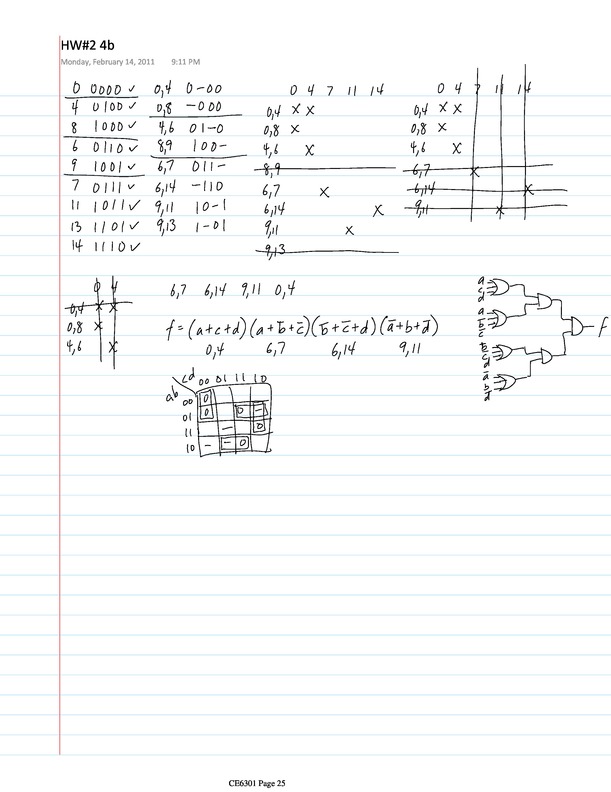 HW#2 4b
Monday, February 14, 2011 9:11 PM
0 0000 ✓ 0,4 0-00 0 4 7 11 14 0 4 7 11 14
4 0100 ✓ 0,8 -000 0,4 X X 0,4 X X
8 1000 ✓ 4,6 01-0 0,8 X 0,8 X
6 0110 ✓ 8,9 100- 4,6 X 4,6 X
9 1001 ✓ 6,7 011- 8,9 6,7 X
7 0111 ✓ 6,14 -110 6,7 X 6,14 X
11 1011 ✓ 9,11 10-1 6,14 X 9,11 X
13 1101 ✓ 9,13 1-01 9,11 X
14 1110 ✓ 9,13
0 4 6,7 6,14 9,11 0,4
0,4 X X
0,8 X f = (a+c+d)(a+b̅+c̅)(b̅+c̅+d)(a̅+b+d̅)
4,6 X 0,4 6,7 6,14 9,11
a c d
a b̅ c̅
b̅ c̅ d
a̅ b d̅
f
cd 00 01 11 10
ab 00 0
01 0 0 -
11 - 0
10 - - 0
CE6301 Page 25